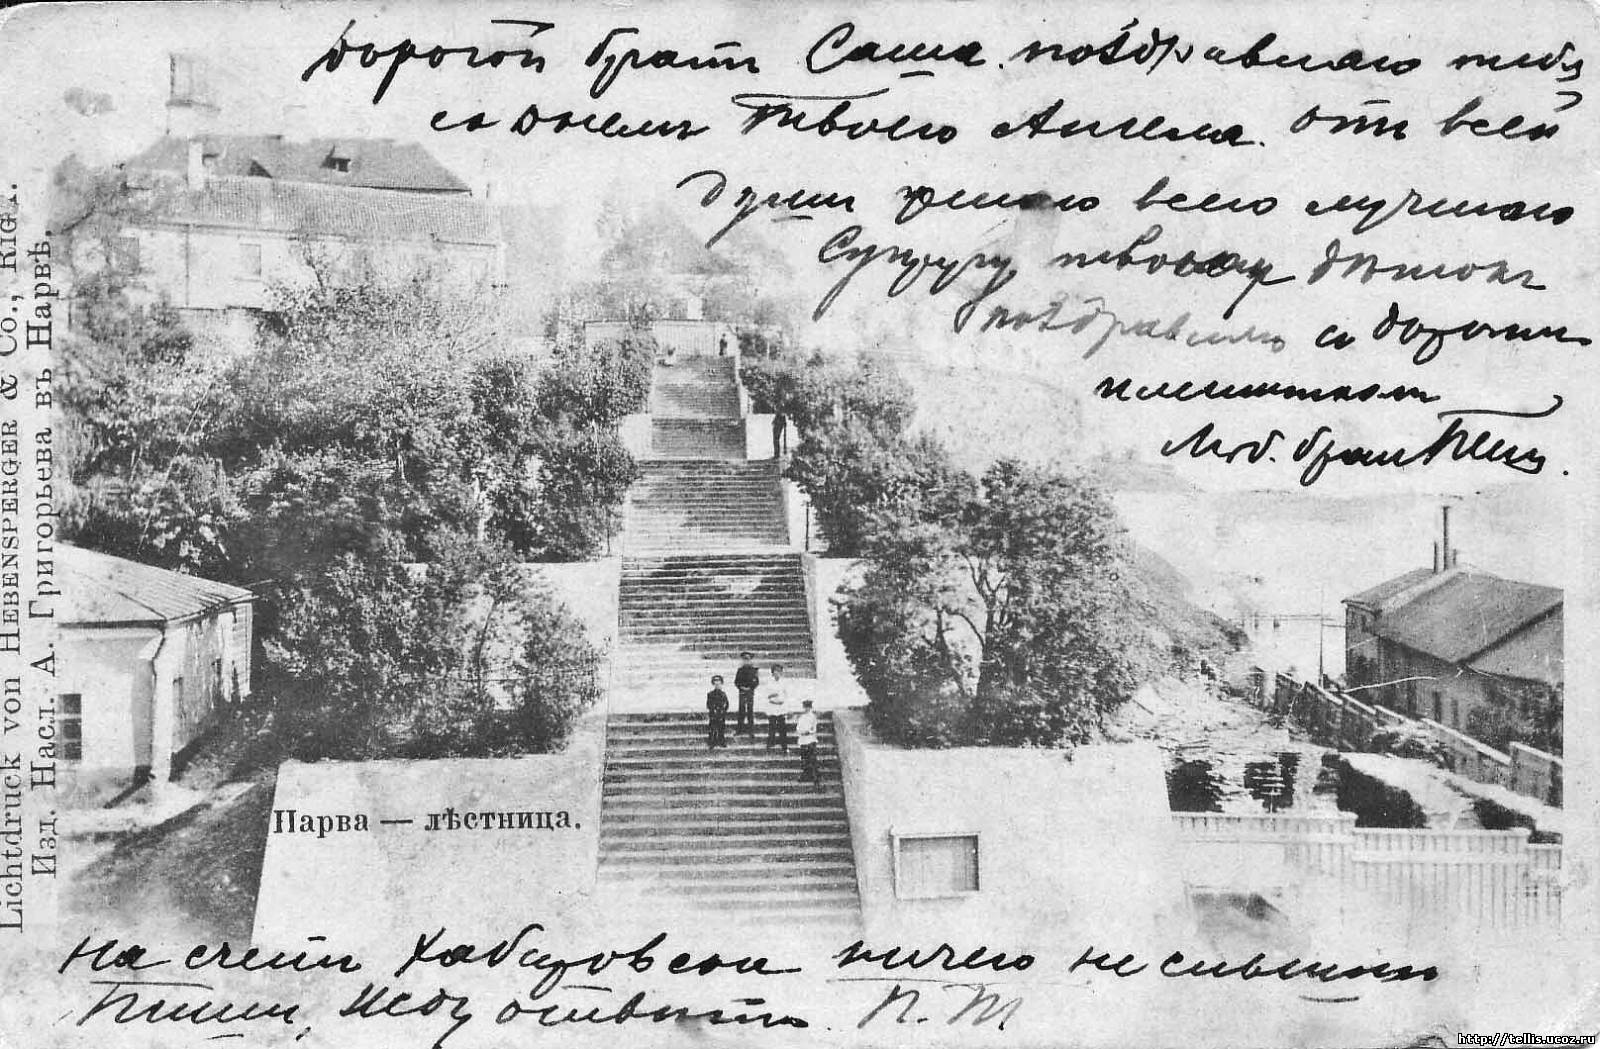 Дорогой братъ Саша поздравляю тебя
съ днемъ твоего Ангела. отъ всей
души желаю всего лучшаго
Супругу твою и дѣтокъ
поздравляю съ дорогим
имянинникомъ
Люб. братъ
На счетъ Хабаровска ничего не слышно
Пиши, жду отвѣтъ. П. Т
Нарва — лѣстница.
Lichtdruck von Hebensperger & Co., Riga.
Изд. Насл. А. Григорьева въ Нарвѣ.
http://tellis.ucoz.ru